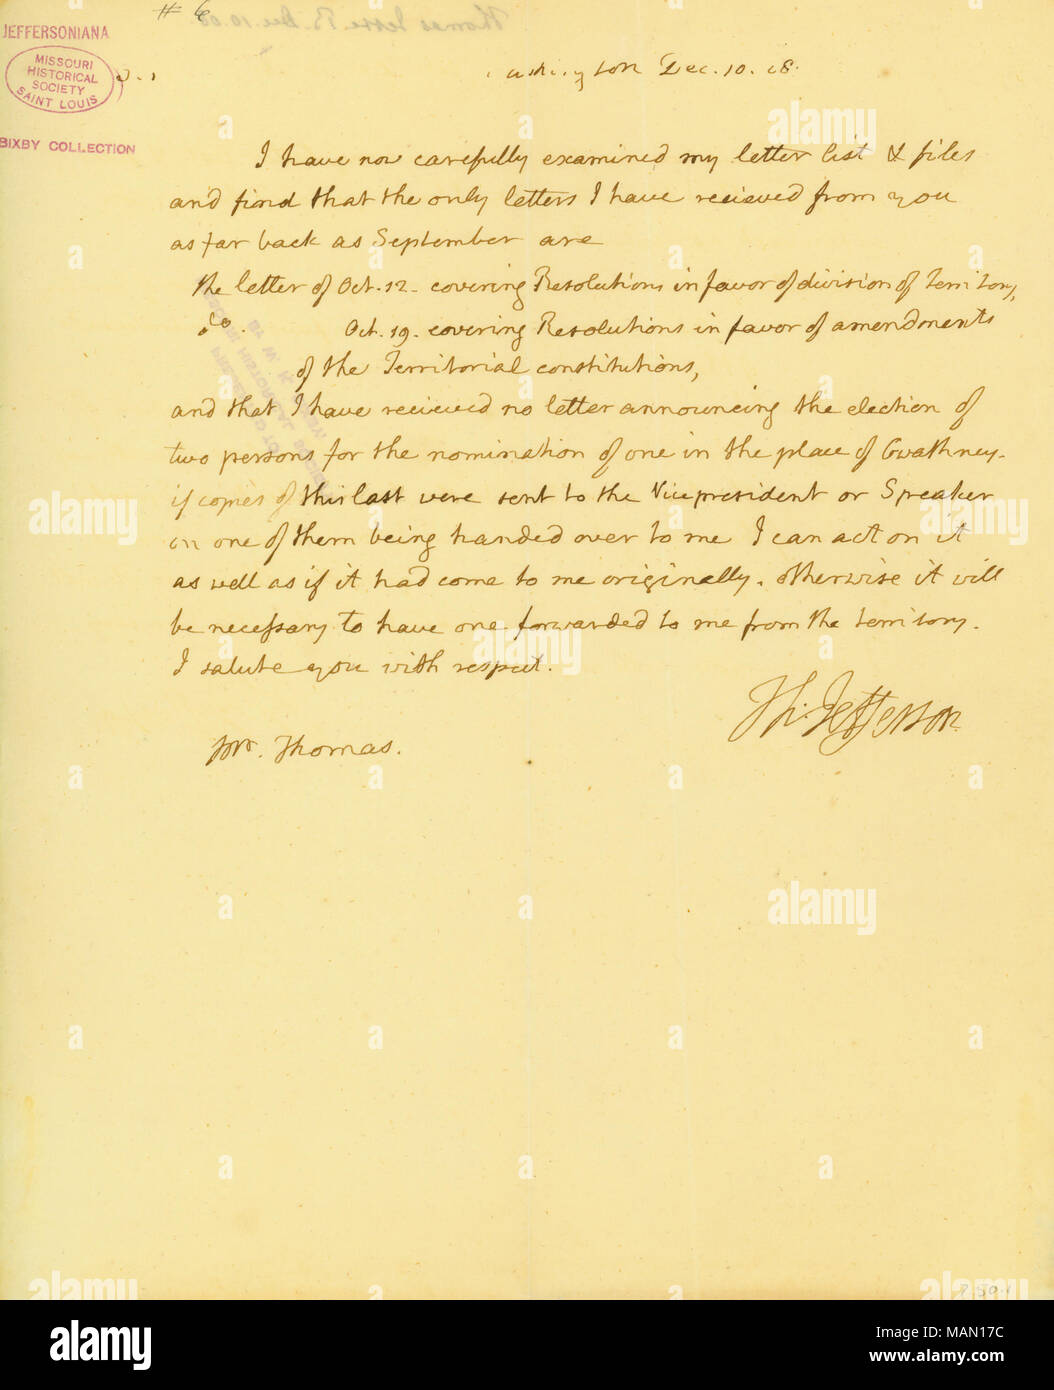 # 6
Thomas Jesse B. Dec. 10. 08
JEFFERSONIANA
MISSOURI
HISTORICAL
SOCIETY
SAINT LOUIS
BIXBY COLLECTION
ashington Dec. 10. 08.
I have now carefully examined my letter list & files
and find that the only letters I have recieved from you
as far back as September are
the letter of Oct. 12. covering Resolutions in favor of division of Territory,
do. Oct. 19. covering Resolutions in favor of amendments
of the Territorial constitutions,
and that I have recieved no letter announcing the election of
two persons for the nomination of one in the place of Gwathney.
if copies of this last were sent to the Vice president or Speaker
on one of them being handed over to me I can act on it
as well as if it had come to me originally. otherwise it will
be necessary to have one forwarded to me from the territory.
I salute you with respect.
Th: Jefferson
Mr. Thomas.
alamy
Image ID: MAN17C
www.alamy.com